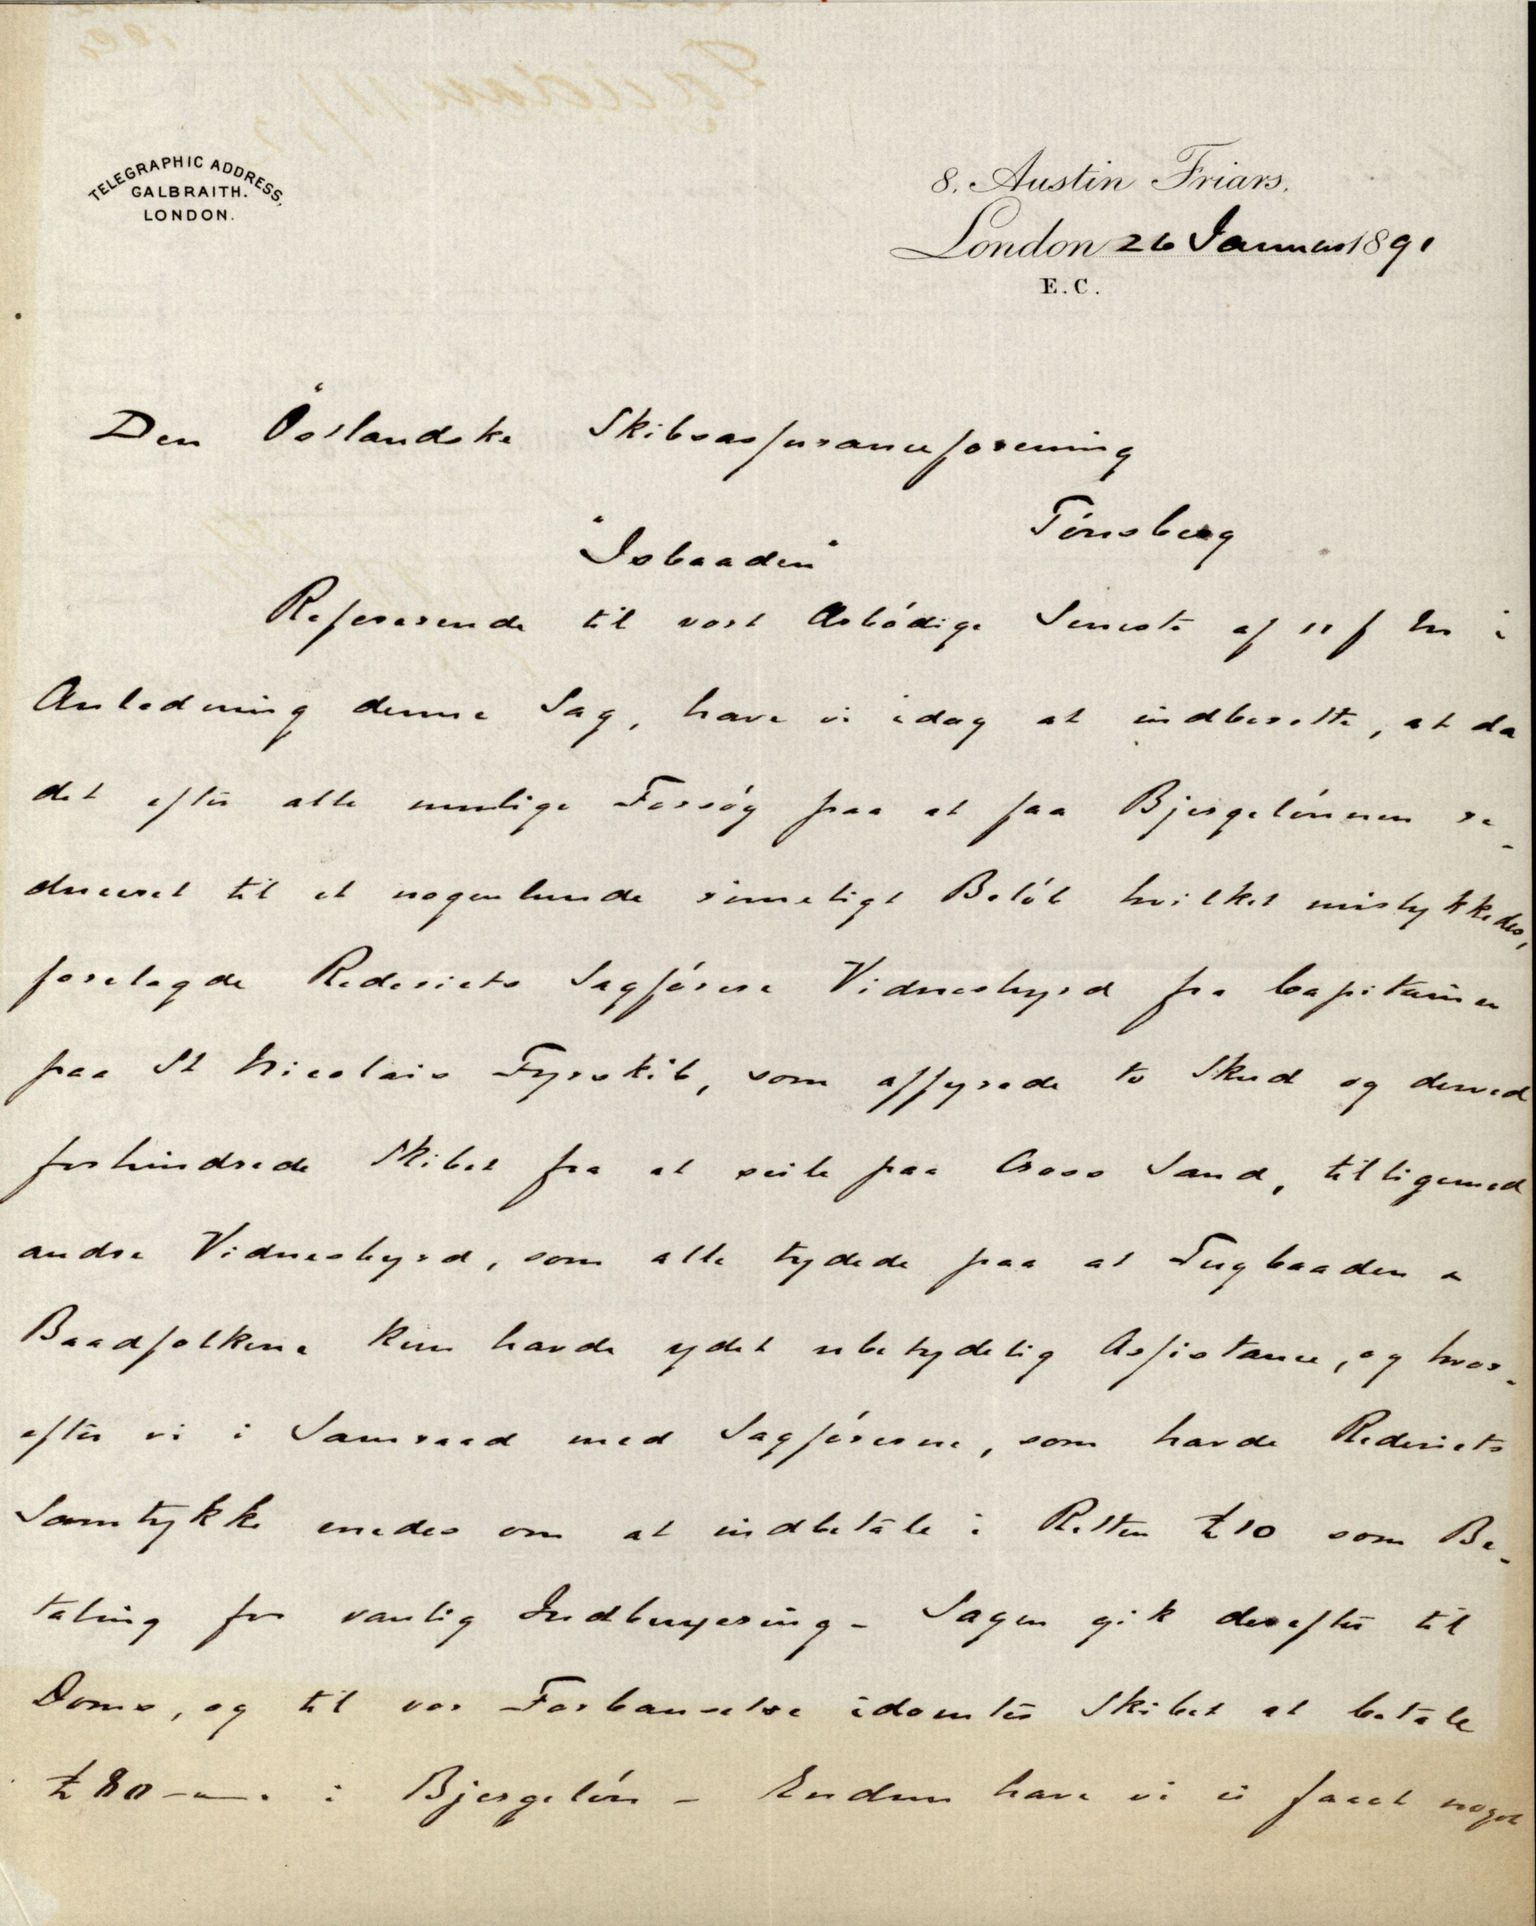 TELEGRAPHIC ADDRESS,
GALBRAITH.
LONDON.
8, Austin Friars,
London 26 Januar 1891
E.C.
Den Östlandske Skibsassuranceforening
Tönsberg
"Isbaaden"
Refererende til vort Arbödige Seneste af 11 f Mr i
Anledning denne Sag, have vi idag at indberette, at da
det efter alle mulige Forsög paa at faa Bjergelönnen re-
duceret til et nogenlunde rimeligt Belöb hvilket mislykkedes,
forelagde Rederiets Sagförere Vidnesbyrd fra Capitainen
paa St Nicolais Fyrskib, som affyrede to Skud og derved
forhindrede Skibet fra at seile paa Cross Sand, tilligemed
andre Vidnesbyrd, som alle tydede paa at Tugbaaden &
Baadfolkene kun havde ydet ubetydelig Assistance, og hvor-
efter vi i Samraad med Sagförerne, som havde Rederiets
Samtykke enedes om at indbetale i Retten £10 som Be-
taling for vanlig Indbugsering - Sagen gik derefter til
Doms, og til vor Forbauselse idömtes Skibet at betale
£80 -"-"- i Bjergelön - Endnu have vi ei faaet noget